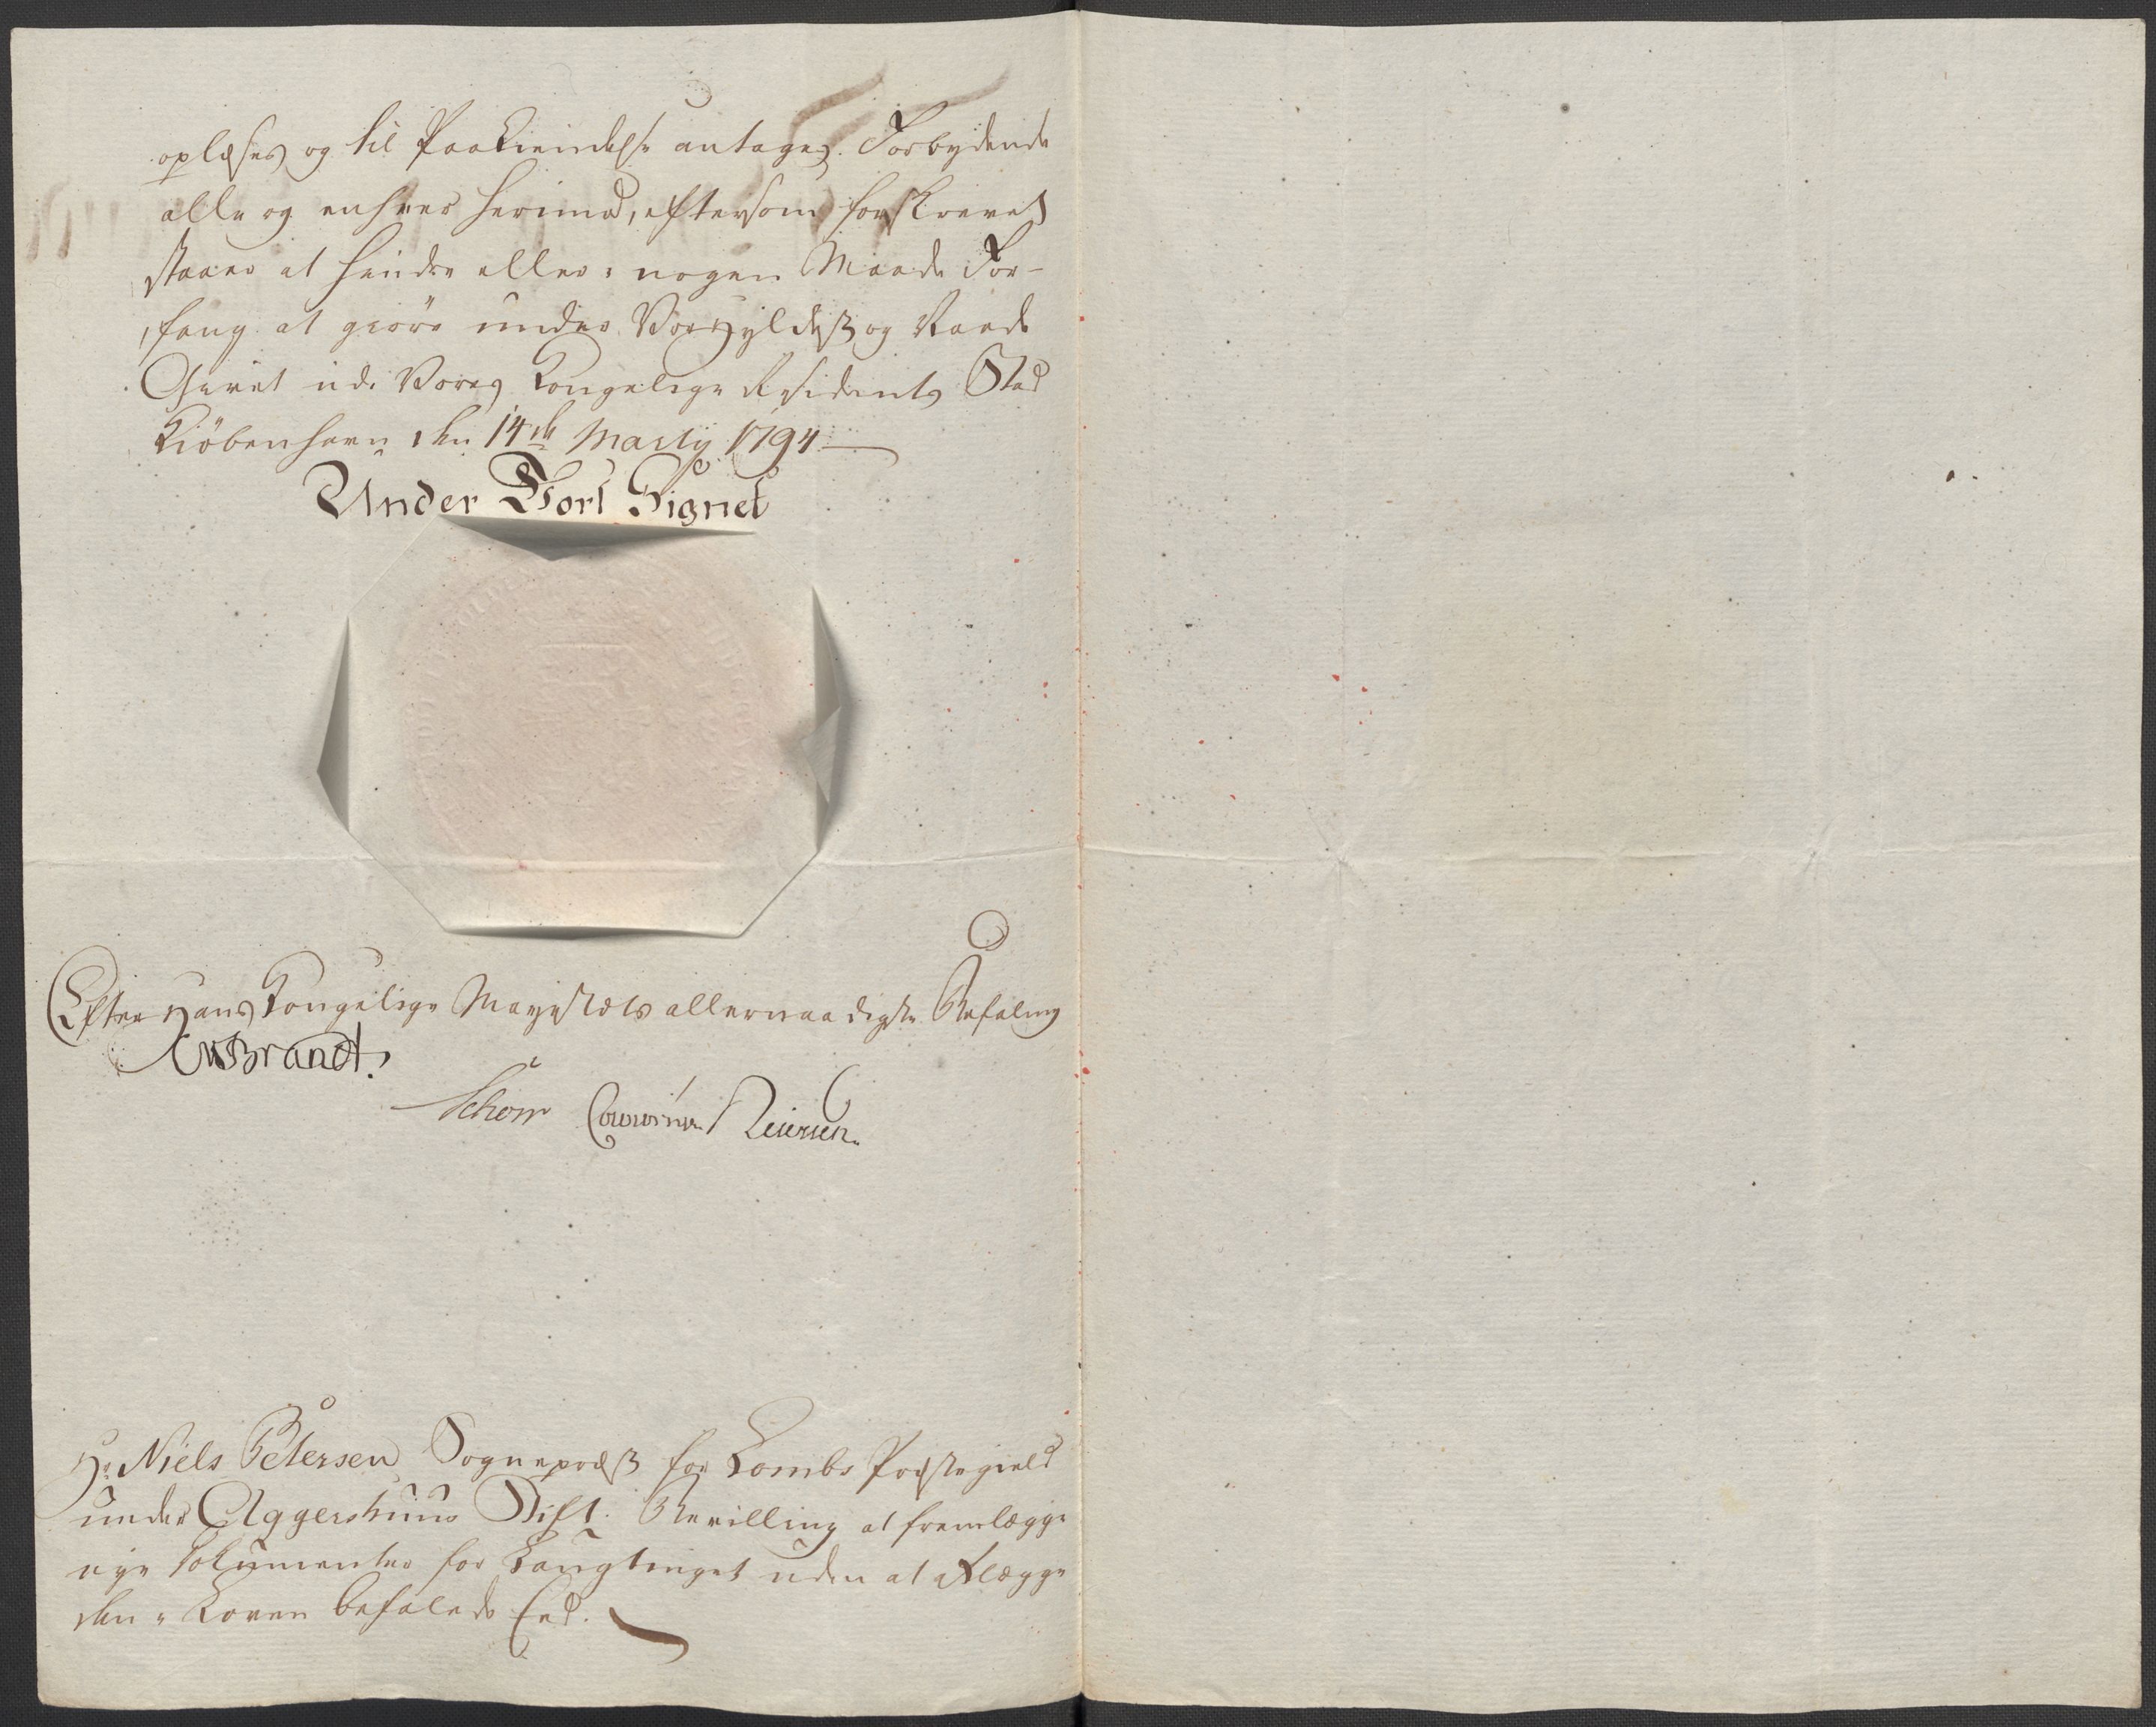 oplæses og til Paakiendelse antages. Forbydende
alle og enhver herimod, eftersom forskrevet
staaer at hindre eller i nogen Maade For-
fang at giöre under Vor Hyldest og Naade
Givet udi Vores Kongelige Residents Stad
Kiöbenhavn den 14de Martij 1794
Under Vort Signet
Efter Hans Kongelige Mayestæts allernaadigste Befaling
Brandt.
Schow Reiersen.
Hr. Niels Petersen Sognepræst for Lombs Præstegield
under Aggershuus Stift. Bevilling at fremlægge
nye Dokumenter for Laugtinget uden at aflægge
den i Loven befalede Eed.